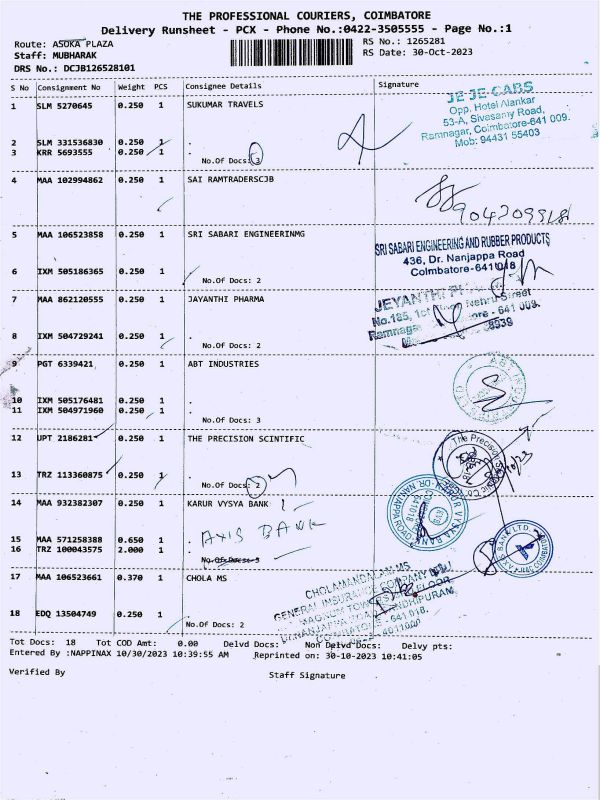 THE PROFESSIONAL COURIERS, COIMBATORE
Delivery Runsheet - PCX - Phone No.:0422-3505555 - Page No.:1
Route: ASOKA PLAZA RS No.: 1265281
Staff: MUBHARAK RS Date: 30-Oct-2023
DRS No.: DCJB126528101
S No Consignment No Weight PCS Consignee Details Signature
1 SLM 5270645 0.250 1 SUKUMAR TRAVELS
JE JE CABS
Opp. Hotel Alankar
53-A, Sivasamy Road,
Ramnagar, Coimbatore-641 009.
Mob: 94431 55403
2 SLM 331536830 0.250 1 .
3 KRR 5693555 0.250 1 .
No.Of Docs: 3
4 MAA 102994862 0.250 1 SAI RAMTRADERSCJB
5 MAA 106523858 0.250 1 SRI SABARI ENGINEERINMG
SRI SABARI ENGINEERING AND RUBBER PRODUCTS
436, Dr. Nanjappa Road
Coimbatore-641018
6 IXM 505186365 0.250 1 .
No.Of Docs: 2
7 MAA 862120555 0.250 1 JAYANTHI PHARMA
JEYANTHI
No.185, Nehru Street
Ramnagar - 641 009.
8 IXM 504729241 0.250 1 .
No.Of Docs: 2
9 PGT 6339421 0.250 1 ABT INDUSTRIES
10 IXM 505176481 0.250 1 .
11 IXM 504971960 0.250 1 .
No.Of Docs: 3
12 UPT 2186281 0.250 1 THE PRECISION SCINTIFIC
The Precision
13 TRZ 113360875 0.250 1 .
No.Of Docs: 2
14 MAA 932382307 0.250 1 KARUR VYSYA BANK
15 MAA 571258388 0.650 1 .
AXIS BANK
16 TRZ 100043575 2.000 1 .
No.Of Docs: 3
17 MAA 106523661 0.370 1 CHOLA MS
CHOLAMANDALAM MS
GENERAL INSURANCE COMPANY
18 EDQ 13504749 0.250 1 .
No.Of Docs: 2
Tot Docs: 18 Tot COD Amt: 0.00 Delvd Docs: Non Delvd Docs: Delvy pts:
Entered By :NAPPINAX 10/30/2023 10:39:55 AM Reprinted on: 30-10-2023 10:41:05
Verified By Staff Signature